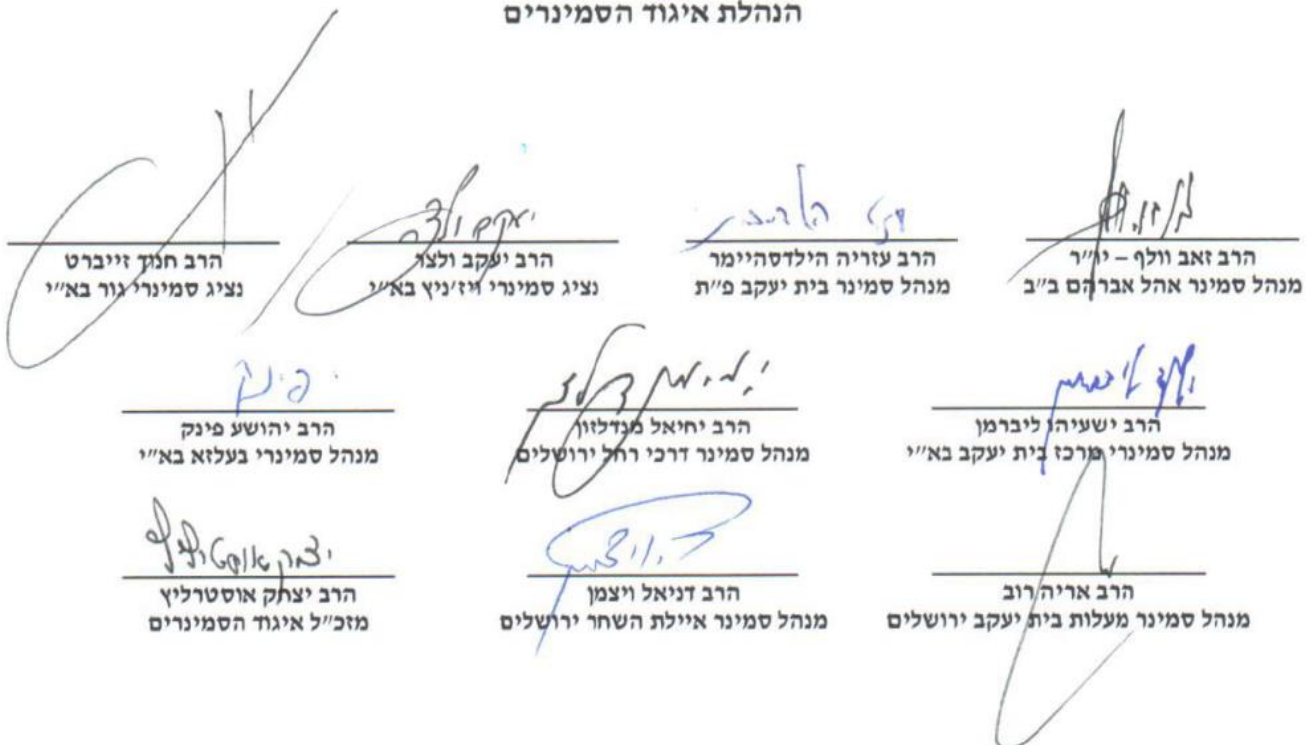 הנהלת איגוד הסמינרים
הרב זאב וולף – יו״ר
מנהל סמינר אהל אברהם ב״ב
הרב עזריה הילדסהיימר
מנהל סמינר בית יעקב פ״ת
יעקב ולצר
הרב יעקב ולצר
נציג סמינרי ויז׳ניץ בא״י
הרב חנוך זייברט
נציג סמינרי גור בא״י
הרב ישעיהו ליברמן
מנהל סמינרי מרכז בית יעקב בא״י
הרב יחיאל מנדלזון
מנהל סמינר דרכי רחל ירושלים
פינק
הרב יהושע פינק
מנהל סמינרי בעלזא בא״י
הרב אריה רוב
מנהל סמינר מעלות בית יעקב ירושלים
ד. ויצמן
הרב דניאל ויצמן
מנהל סמינר איילת השחר ירושלים
יצחק אוסטרליץ
הרב יצחק אוסטרליץ
מזכ״ל איגוד הסמינרים